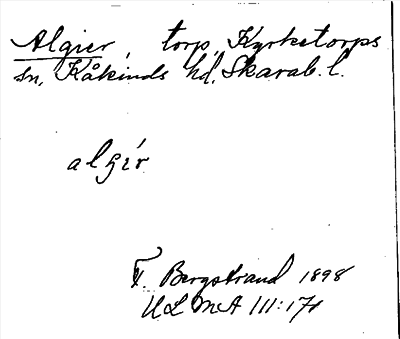 Algier, torp, Kyrketorps
sn, Kåkinds hd, Skarab. l.
algír
F. Bergstrand 1898
ULMA 111:171